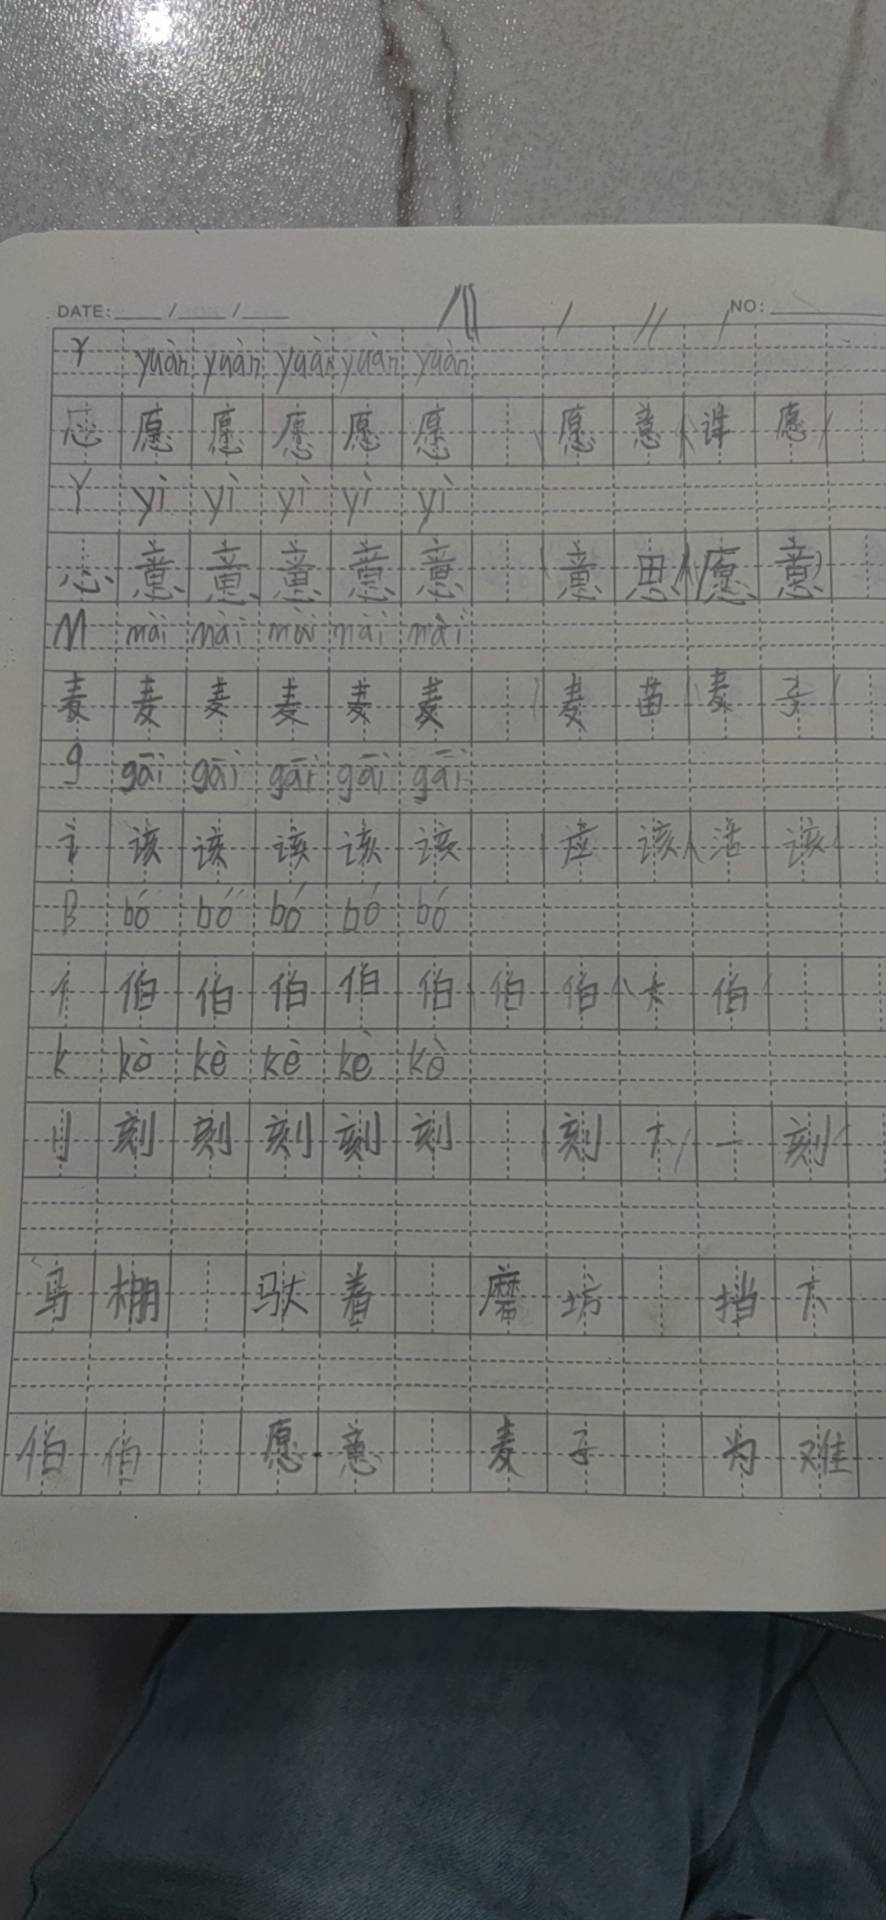 DATE: / / NO:
Y yuàn yuàn yuàn yuàn yuàn
心 愿 愿 愿 愿 愿 (愿意)(许愿)
Y yì yì yì yì yì
心 意 意 意 意 意 (意思)(愿意)
M mài mài mài mài mài
麦 麦 麦 麦 麦 麦 (麦苗)(麦子)
g gāi gāi gāi gāi gāi
讠 该 该 该 该 该 (应该)(活该)
B bó bó bó bó bó
亻 伯 伯 伯 伯 伯 (伯伯)(大伯)
k kè kè kè kè kè
刂 刻 刻 刻 刻 刻 (刻下)(一刻)
马棚 驮着 磨坊 挡下
伯伯 愿意 麦子 为难